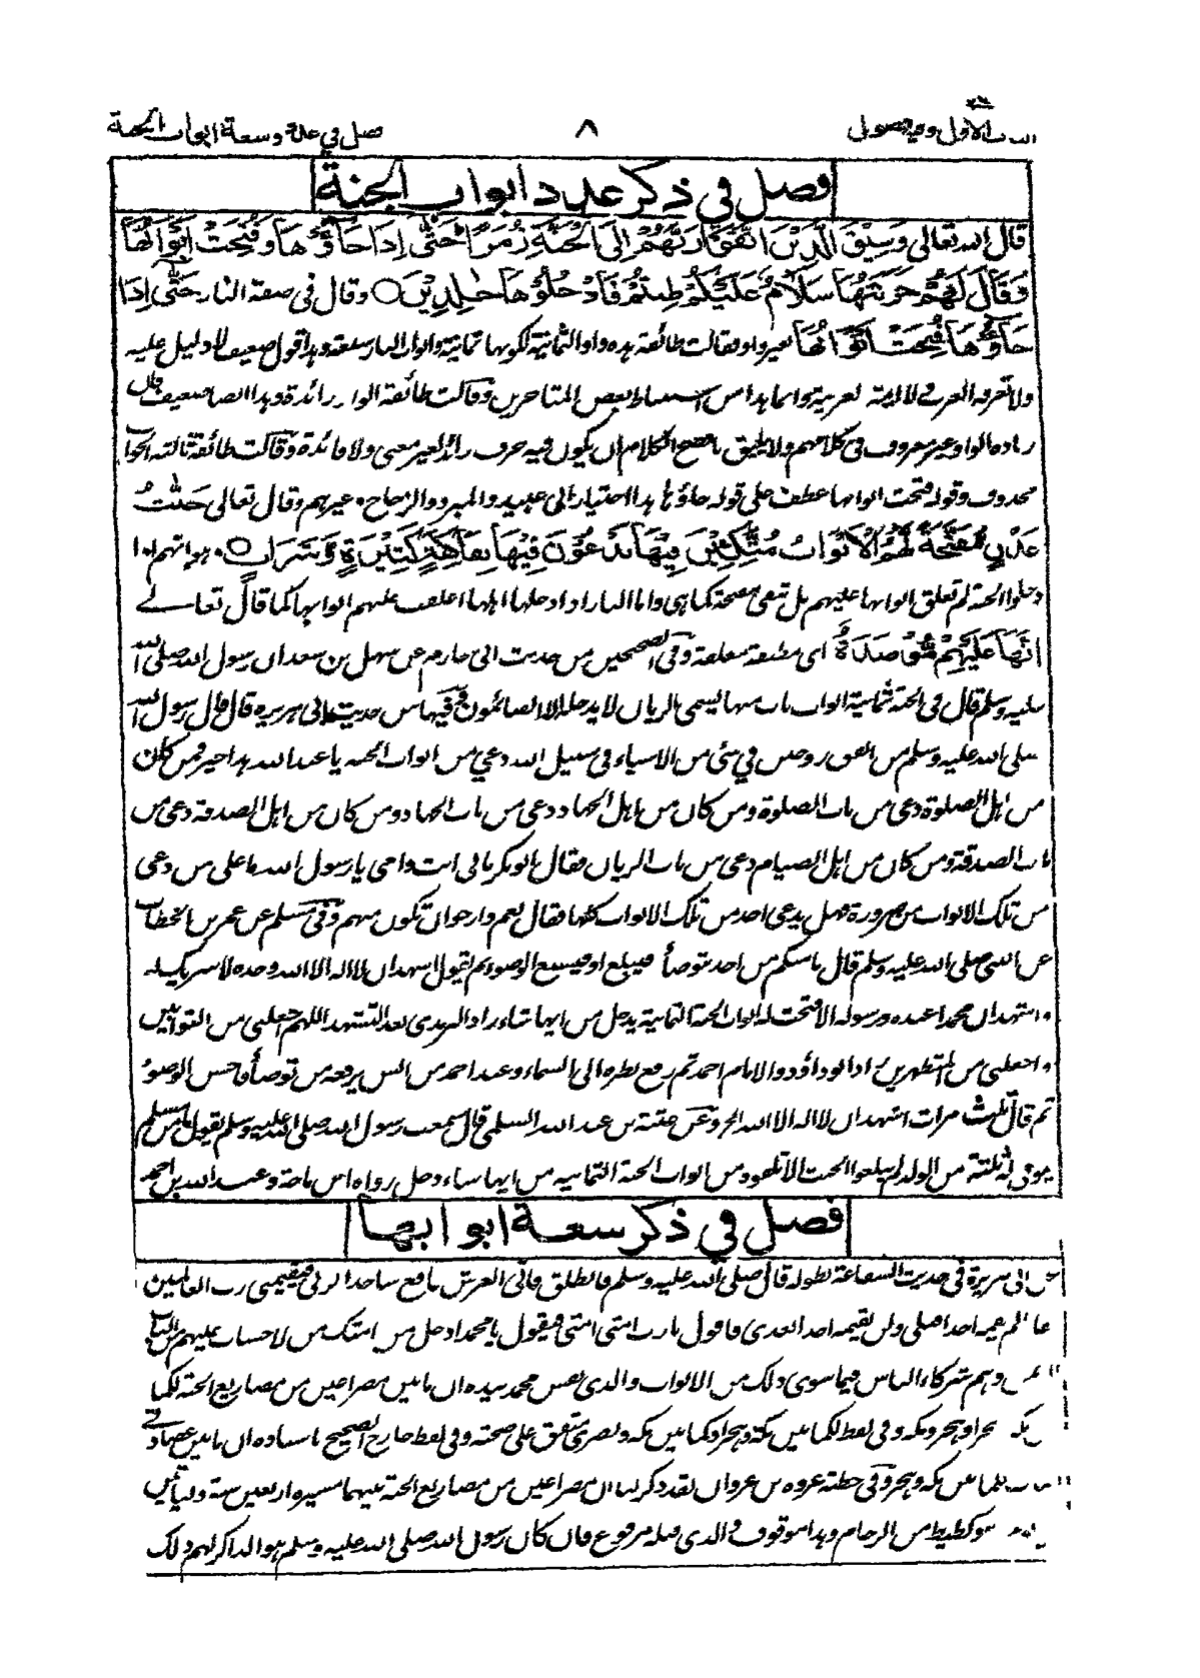 الباب الاول وفيه فصول ٨ فصل في عدد وسعة ابواب الجنة
فصل في ذكر عدد أبواب الجنة
قال الله تعالى وَسِيْقَ الَّذِيْنَ اتَّقَوْا رَبَّهُمْ إِلَى الْجَنَّةِ زُمَرًا حَتّٰى إِذَا جَاؤُهَا وَفُتِحَتْ أَبْوَابُهَا
وَقَالَ لَهُمْ خَزَنَتُهَا سَلَامٌ عَلَيْكُمْ طِبْتُمْ فَادْخُلُوْهَا خٰلِدِيْنَ وقال في صفة النار حَتّٰى إِذَا
جَاؤُهَا فُتِحَتْ أَبْوَابُهَا بغير واو فقالت طائفة هذه واو الثمانية لكونها ثمانية وابواب النار سبعة وهذا قول ضعيف لا دليل عليه
ولا تعرفه العرب ولا ائمة العربية وانما هذا من استنباط بعض المتاخرين وقالت طائفة الواو زائدة وهذا ايضا ضعيف فان
زيادة الواو غير معروف في كلامهم ولا يليق بافصح الكلام ان يكون فيه حرف زائد لغير معنى ولا فائدة وقالت طائفة ثالثة الجواب
محذوف وقوله فتحت ابوابها عطف على قوله جاؤها هذا اختيار ابي عبيد والمبرد والزجاج وغيرهم وقال تعالى جَنّٰتُ
عَدْنٍ مُفَتَّحَةً لَهُمُ الْأَبْوَابُ مُتَّكِئِيْنَ فِيْهَا يَدْعُوْنَ فِيْهَا بِفَاكِهَةٍ كَثِيْرَةٍ وَشَرَابٍ وهو انهم اذا
دخلوا الجنة لم تغلق ابوابها عليهم بل تبقى مفتحة كما هي واما النار اذا دخلها اهلها اغلقت عليهم ابوابها كما قال تعالى
إِنَّهَا عَلَيْهِمْ مُؤْصَدَةٌ اي مطبقة مغلقة وفي الصحيحين من حديث ابي حازم عن سهل بن سعد ان رسول الله صلى الله
عليه وسلم قال في الجنة ثمانية ابواب باب منها يسمى الريان لا يدخله الا الصائمون وفيهما من حديث ابي هريرة قال قال رسول الله
صلى الله عليه وسلم من انفق زوجين في شئ من الاشياء في سبيل الله دعي من ابواب الجنة يا عبد الله هذا خير فمن كان
من اهل الصلوة دعى من باب الصلوة ومن كان من اهل الجهاد دعى من باب الجهاد ومن كان من اهل الصدقة دعى من
باب الصدقة ومن كان من اهل الصيام دعى من باب الريان فقال ابو بكر بابي انت وامي يا رسول الله ما على من دعى
من تلك الابواب من ضرورة فهل يدعى احد من تلك الابواب كلها فقال نعم وارجو ان تكون منهم وفي مسلم عن عمر بن الخطاب
عن النبي صلى الله عليه وسلم قال ما منكم من احد يتوضأ فيبلغ او فيسبغ الوضوء ثم يقول اشهد ان لا اله الا الله وحده لا شريك له
واشهد ان محمدا عبده ورسوله الا فتحت له ابواب الجنة الثمانية يدخل من ايها شاء زاد الترمذي بعد التشهد اللهم اجعلني من التوابين
واجعلني من المتطهرين زاد ابو داؤد والامام احمد ثم رفع نظره الى السماء وعند احمد من انس يرفعه من توضأ فاحسن الوضوء
ثم قال ثلث مرات اشهد ان لا اله الا الله الخ وعن عتبة بن عبد الله السلمي قال سمعت رسول الله صلى الله عليه وسلم يقول ما من مسلم
يتوفى له ثلثة من الولد لم يبلغوا الحنث الا تلقوه من ابواب الجنة الثمانية من ايها شاء دخل رواه ابن ماجة وعبد الله بن احمد
فصل في ذكر سعة ابوابها
عن ابي هريرة في حديث الشفاعة بطوله قال صلى الله عليه وسلم فانطلق فآتي العرش فاقع ساجدا لربي فيقيمني رب العالمين
لم يقمه احدا قبلي ولن يقيمه احدا بعدي فاقول يا رب امتي امتي فيقول يا محمد ادخل من امتك من لا حساب عليهم من الباب
الايمن وهم شركاء الناس فيما سوى ذلك من الابواب والذي نفس محمد بيده ان ما بين مصراعين من مصاريع الجنة لكما
بين مكة وهجر او هجر ومكة وفي لفظ لكما بين مكة وهجر او كما بين مكة وبصرى متفق على صحته وفي لفظ خارج الصحيح باسناده ان ما بين عضادتي
الباب لكما بين مكة وهجر وفي خطبة عروة بن غزوان لقد ذكر لنا ان مصراعين من مصاريع الجنة بينهما مسيرة اربعين سنة وليأتين
عليه يوم وهو كظيظ من الزحام وهذا موقوف والذي قبله مرفوع فان كان رسول الله صلى الله عليه وسلم هو الذاكر لهم ذلك